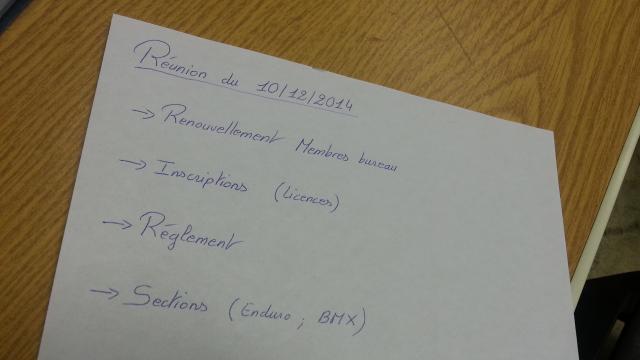 Réunion du 10/12/2014
→ Renouvellement Membres bureau
→ Inscriptions (Licences)
→ Réglement
→ Sections (Enduro ; BMX)